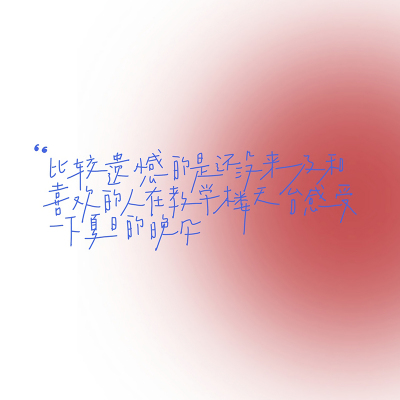 “比较遗憾的是还没来及和
喜欢的人在教学楼天台感受
一下夏日的晚